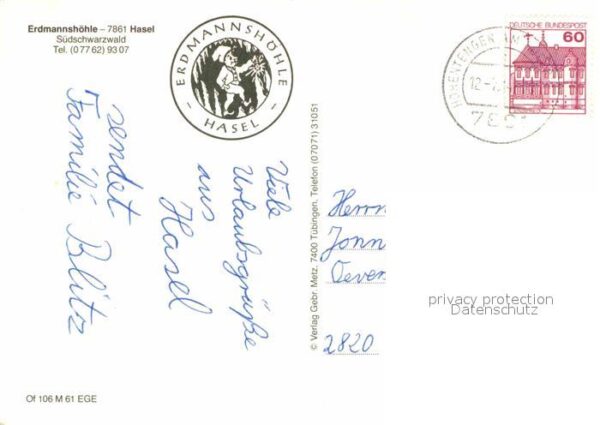 Erdmannshöhle – 7861 Hasel
Südschwarzwald
Tel. (07762) 9307
ERDMANNSHÖHLE
- HASEL -
DEUTSCHE BUNDESPOST
60
12.-7.
Viele
Urlaubsgrüße
aus
Hasel
sendet
Familie Blitz
© Verlag Gebr. Metz, 7400 Tübingen, Telefon (07071) 31051
Herrn
Jonn
Oever
2820
privacy protection
Datenschutz
Of 106 M 61 EGE